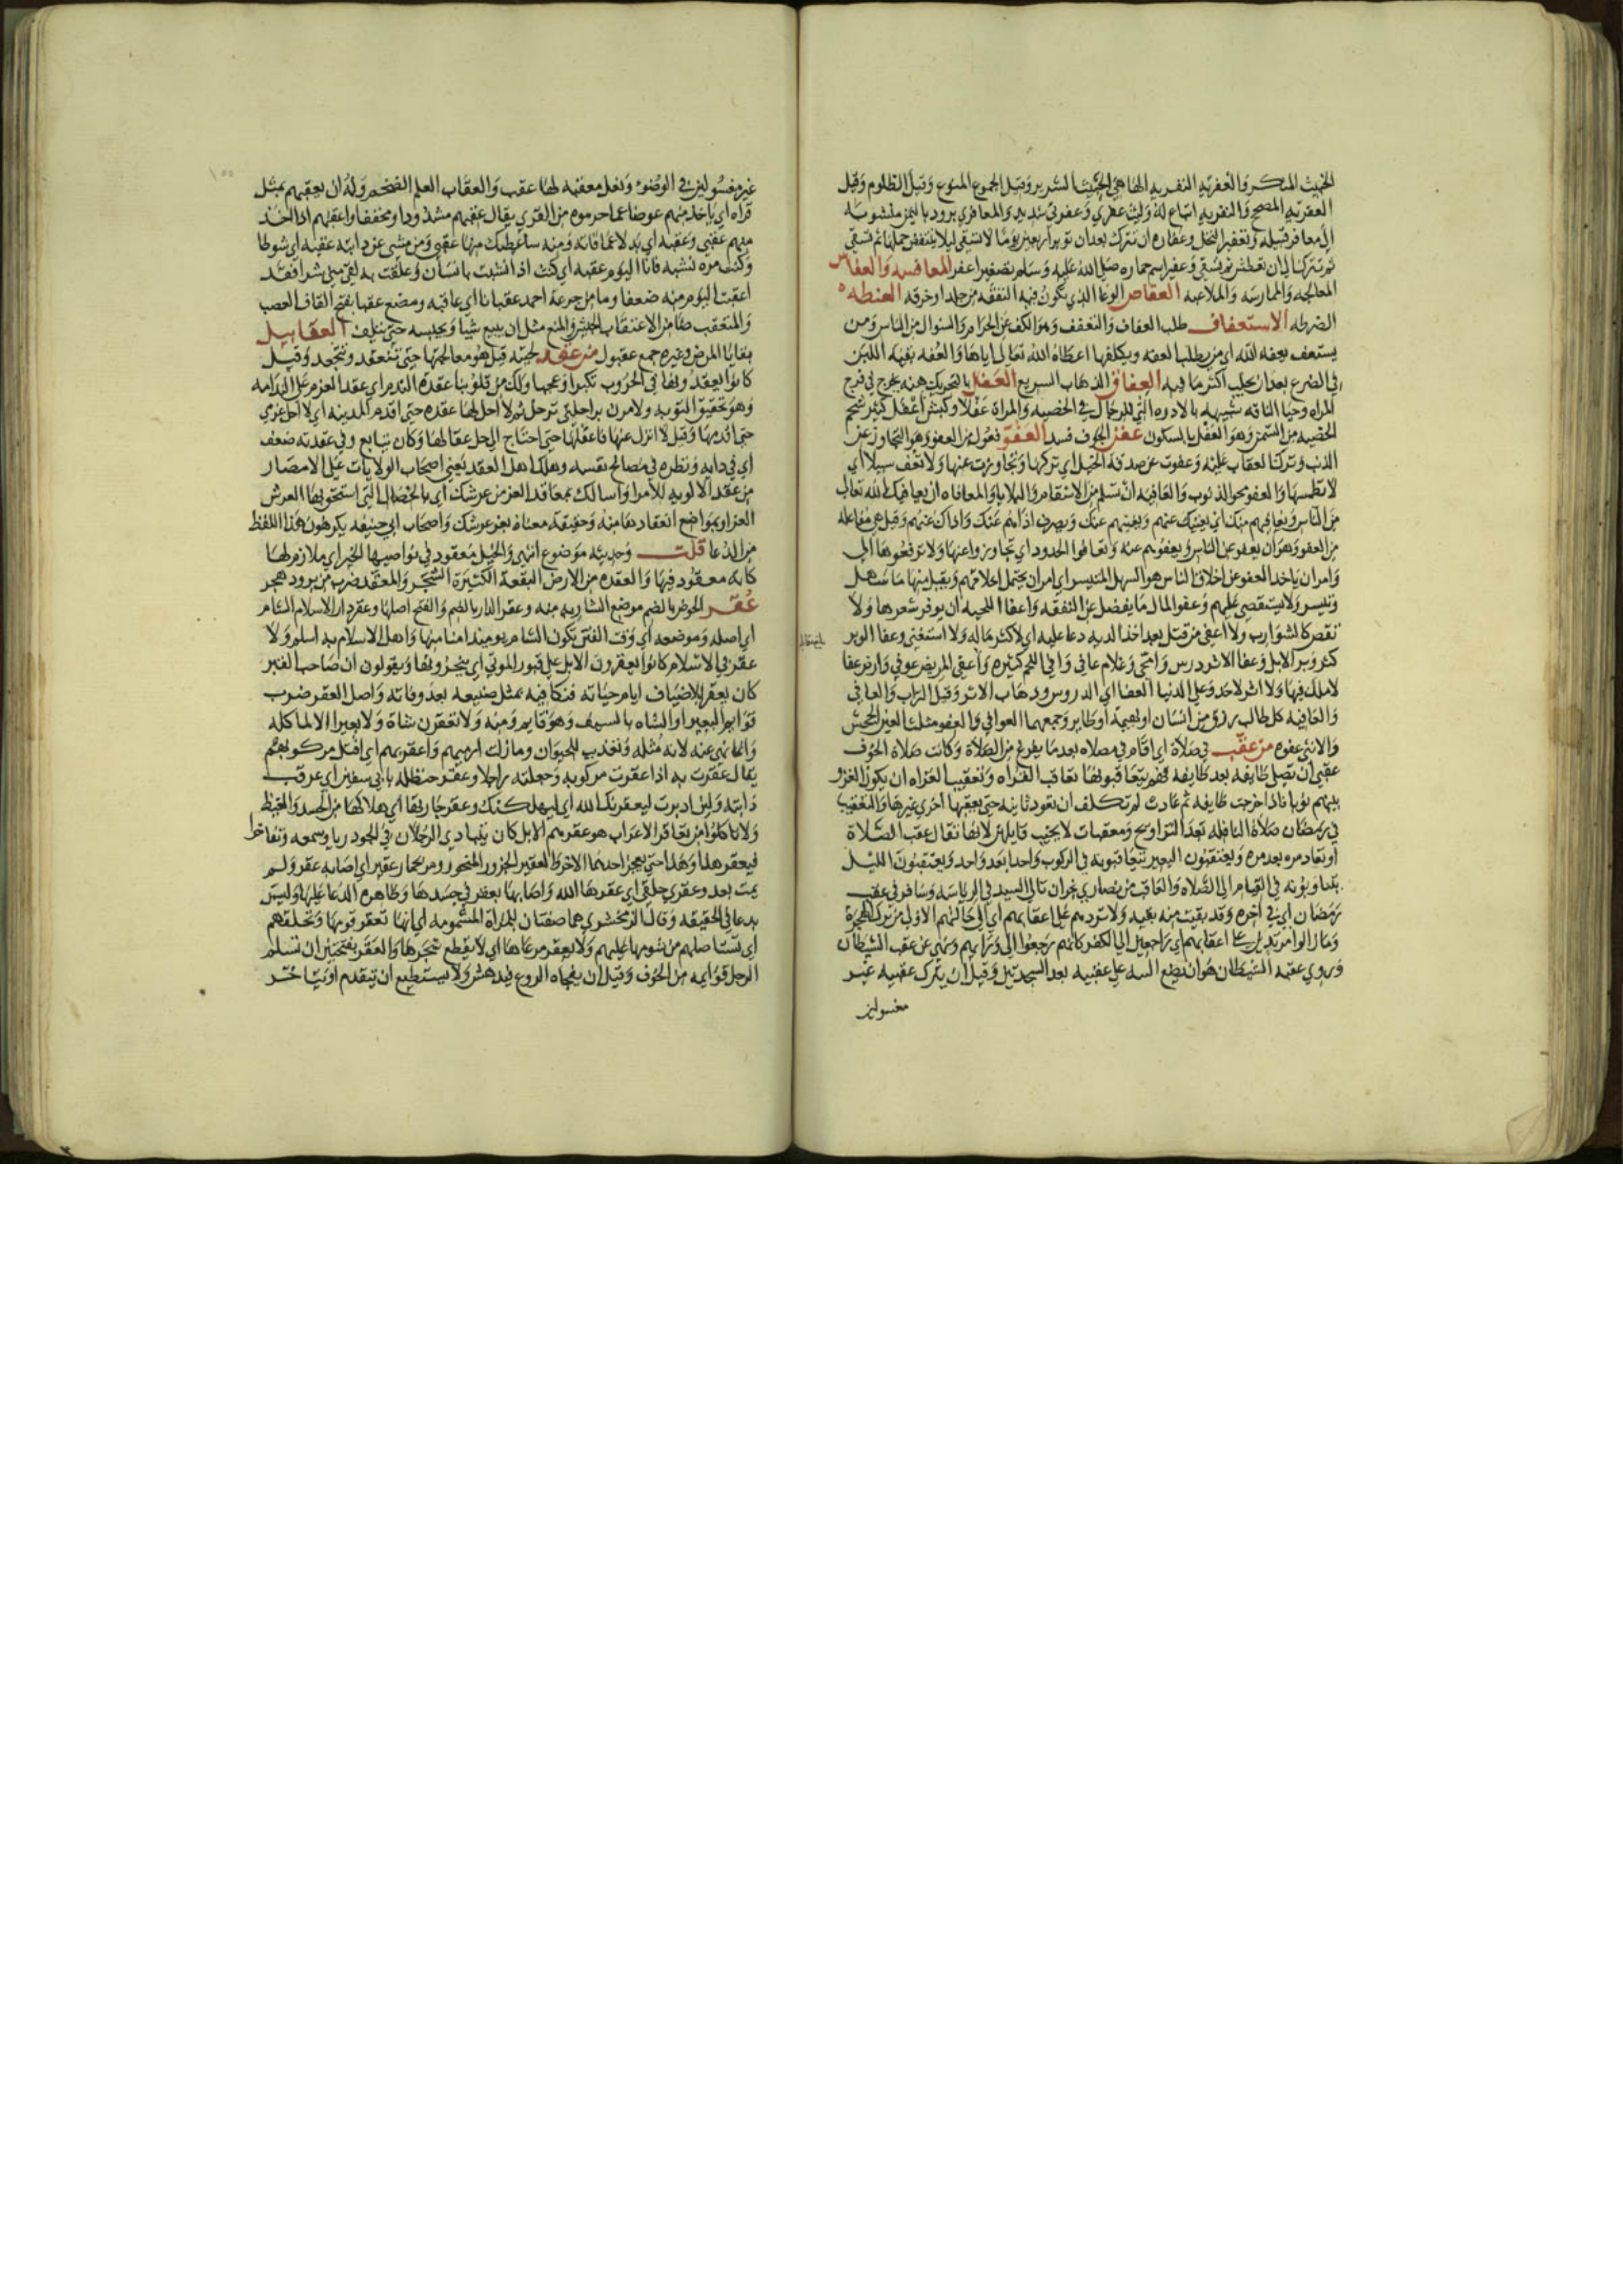 الخبيث المنكر والعفريه النفريه الخبيث الشرير وقيل الجموع المنوع وقيل الظلوم وقيل
العفريه المصحح والنفريه اتباع له وليث عفري وعفرني شديد والمعافري برود باليمن منسوبه
الى معافر قبيله وتعفير النخل وعفاره ان تترك بعدان توبر اربعين يوما لا تسقى ليلا ينتفض حملها ثم تسقى
ثم تترك الى ان تعطش ثم تسقى وعفير اسم حماره صلى الله عليه وسلم تصغير اعفر المعافسه والعفاس
المعالجه والممارسه والملاعبه العفاص الوعا الذي تكون فيه النفقه من جلد او خرقه العفطه
الضرطه الاستعفاف طلب العفاف والتعفف وهو الكف عن الحرام والسوال من الناس ومن
يستعفف يعفه الله اي من يطلب العفه ويتكلفها اعطاه الله تعالى اياها والعفه بقيه اللبن
في الضرع بعد ان يحلب اكثر ما فيه العفاق الذهاب السريع العفل بالتحريك هنه تخرج في فرج
المراه وحيا الناقه شبيهه بالادره التي للرجال في الخصيه والمراة عفلا وكبش اعفل كثير شحم
الخصيه من السمن وهو العفل بالسكون عفن الجوف فسد العفو فعول من العفو وهو التجاوز عن
الذنب وترك العقاب عليه وعفوت عن صدقه الخيل اي تركتها وتجاوزت عنها ولا تعف سبيلا اي
لا تطمسها والعفو محو الذنوب والعافيه ان تسلم من الاسقام والبلايا والمعافاه ان يعافيك الله تعالى
من الناس ويعافيهم منك اي يغنيك عنهم ويغنيهم عنك ويصرف اذاهم عنك واذاك عنهم وقيل هي مفاعله
من العفو وهو ان يعفو عن الناس ويعفو هم عنه وتعافوا الحدود اي تجاوزوا عنها ولا ترفعوها الي
وامر ان ياخذ العفو عن اخلاق الناس هو السهل المتيسر اي امر ان يحتمل اخلاقهم ويقبل منها ما سهل
وتيسر ولا يستقصي عليهم وعفو المال ما يفضل عن النفقه واعفا اللحيه ان يوفر شعرها ولا
تقص كالشوارب ولا اعفي من قتل بعد اخذ الديه دعا عليه اي لا كثر ماله ولا استغنى وعفا الوبر
كثر وبر الابل وعفا الاثر درس وامحى وغلام عافي وافي اللحم كثيره واعفى المريض عوفي وارض عفا
لا ملك فيها ولا اثر لاحد وعلى الدنيا العفا اي الدروس وذهاب الاثر وقيل التراب والعافي
والعافيه كل طالب رزق من انسان او بهيمة او طاير وجمعهما العوافي والعفو مثلث العين الجحش
والانثى عفوه من عقب في صلاة اي اقام في مصلاه بعد ما يفرغ من الصلاة وكانت صلاة الخوف
عقبى ان تصلى طايفه بعد طايفه فهم يتعاقبونها تعاقب الغزاه وتعقيب الغزاه ان يكون الغزو
بينهم نوبا فاذا خرجت طايفه ثم عادت لم تكلف ان تعود ثانيه حتى يعقبها اخرى غيرها والتعقيب
في رمضان صلاة النافله بعد التراويح ومعقبات لا يخيب قايلهن لانها تقال عقب الصلاة
او تعاد مره بعد مره ويعتقبون البعير يتعاقبونه في الركوب واحدا بعد واحد ويعتقبون الليل
يتناوبونه في القيام الى الصلاه والعاقب من نصارى نجران تالي السيد في الرياسه وسافر في عقب
رمضان اي في اخره وقد بقيت منه بقيه ولا تردهم على اعقابهم اي الى حالتهم الاولى من ترك الهجرة
وما زالوا مرتدين على اعقابهم اي راجعين الى الكفر كانهم رجعوا الى وراهم ونهى عن عقب الشيطان
وروي عقبه الشيطان هو ان يضع الييه على عقبيه بعد السجدتين وقيل ان يترك عقبيه غير
مغسولين
غير مغسولين في الوضوء ونعل معقبه لها عقب والعقاب العلم الضخم وله ان يعقبهم بمثل
قراه اي ياخذ منهم عوضا عما حرموه من القرى يقال عقبهم مشددا ومخففا واعقبهم اذا اخذ
منهم عقبى وعقبه اي بدلا عما فاته ومنه ساعطيك منها عقبى ومن مشى عن دابته عقبه اي شوطا
وكنت مره نشبه فانا اليوم عقبه اي كنت اذا نشبت بانسان وعلقت به لقي مني شرا فقد
اعقبت اليوم منه ضعفا وما من جرعة احمد عقبانا اي عاقبه ومضغ عقبا بفتح القاف العصب
والمتعقب ضامن الاعتقاب الحبس والمنع مثل ان يبيع شيا ويحبسه حتى يتلف العقابيل
بقايا المرض وغيره جمع عقبول من عقد لحيته قيل هو معالجتها حتى تنعقد وتتجعد وقيل
كانوا يعقدونها في الحروب تكبرا وعجبا ولك من قلوبنا عقدة الندم اي عقد العزم على الندامه
وهو تحقيق التوبه ولامرن براحلتي ترحل ثم لا احل لها عقده حتى اقدم المدينه اي لا احل عزمي
حتى اقدمها وقيل لا انزل عنها فاعقلها حتى احتاج الى حل عقالها وكان يبايع وفي عقدته ضعف
اي في رايه ونظره في مصالح نفسه وهلك اهل العقد يعني اصحاب الولايات على الامصار
من عقد الالويه للامرا واسالك بمعاقد العز من عرشك اي بالخصال التي استحق بها العرش
العز او بمواضع انعقادها منه وحقيقة معناه بعز عرشك واصحاب ابي حنيفه يكرهون هذا اللفظ
من الدعا قلت وحديثه موضوع انتهى والخيل معقود في نواصيها الخير اي ملازم لها
كانه معقود فيها والعقده من الارض البقعة الكثيرة الشجر والمعقد ضرب من برود هجر
عقر الحوض بالضم موضع الشاربه منه وعقر الدار بالضم والفتح اصلها وعقر دار الاسلام الشام
اي اصله وموضعه اي وقت الفتن يكون الشام يوميذ امنا منها واهل الاسلام به اسلم ولا
عقر في الاسلام كانوا يعقرون الابل على قبور الموتى اي ينحرونها ويقولون ان صاحب القبر
كان يعقر للاضياف ايام حياته فنكافيه بمثل صنيعه بعد وفاته واصل العقر ضرب
قوايم البعير او الشاه بالسيف وهو قايم ومنه ولا تعقرن شاة ولا بعيرا الا لماكله
وانما نهى عنه لانه مثله وتعذيب للحيوان وما زلت ارميهم واعقر بهم اي اقتل مركوبهم
يقال عقرت به اذا عقرت مركوبه وجعلته راجلا وعقر حنظله بابي سفين اي عرقب
دابته ولين ادبرت ليعقرنك الله اي ليهلكنك وعقر جارتها اي هلاكها من الحسد والغيظ
ولا تاكلوا من تعاقر الاعراب هو عقرهم الابل كان يتبارى الرجلان في الجود ريا وسمعه وتفاخرا
فيعقر هذا وهذا حتى يعجز احدهما الاخر والعقير الجزور المنحور ومر بحمار عقير اي اصابه عقر ولم
يمت بعد وعقرى حلقى اي عقرها الله واصابها بعقر في جسدها وظاهره الدعا عليها وليس
بدعا في الحقيقه وقال الزمخشري هما صفتان للمراة المشومه اي انها تعقر قومها وتحلقهم
اي تستاصلهم من شومها عليهم ولا يعقر مرعاها اي لا يقطع شجرها والعقر بفتحتين ان تسلم
الرجل قوايمه من الخوف وقيل ان يفجاه الروع فيدهش ولا يستطيع ان يتقدم او يتاخر